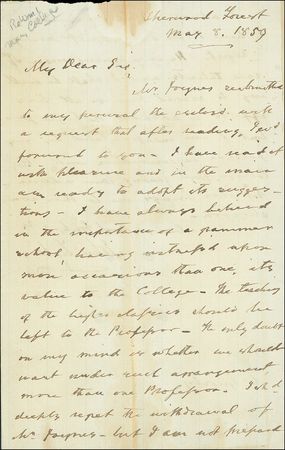 Sherwood Forest
May 8, 1859
My Dear Sir,
Mr Joynes resubmitted
to my perusal the enclosed with
a request that after reading, I w'd
forward to you - I have read it
with pleasure and in the main
am ready to adopt its sugges-
tions - I have always believed
in the importance of a grammar
school, having witnessed upon
more occasions than one, its
value to the College - The teaching
of the higher classics should be
left to the Professor - The only doubt
on my mind is whether we should
want under such arrangement
more than one Professor. I sh'd
deeply regret the withdrawal of
Mr Joynes - but I am not prepared